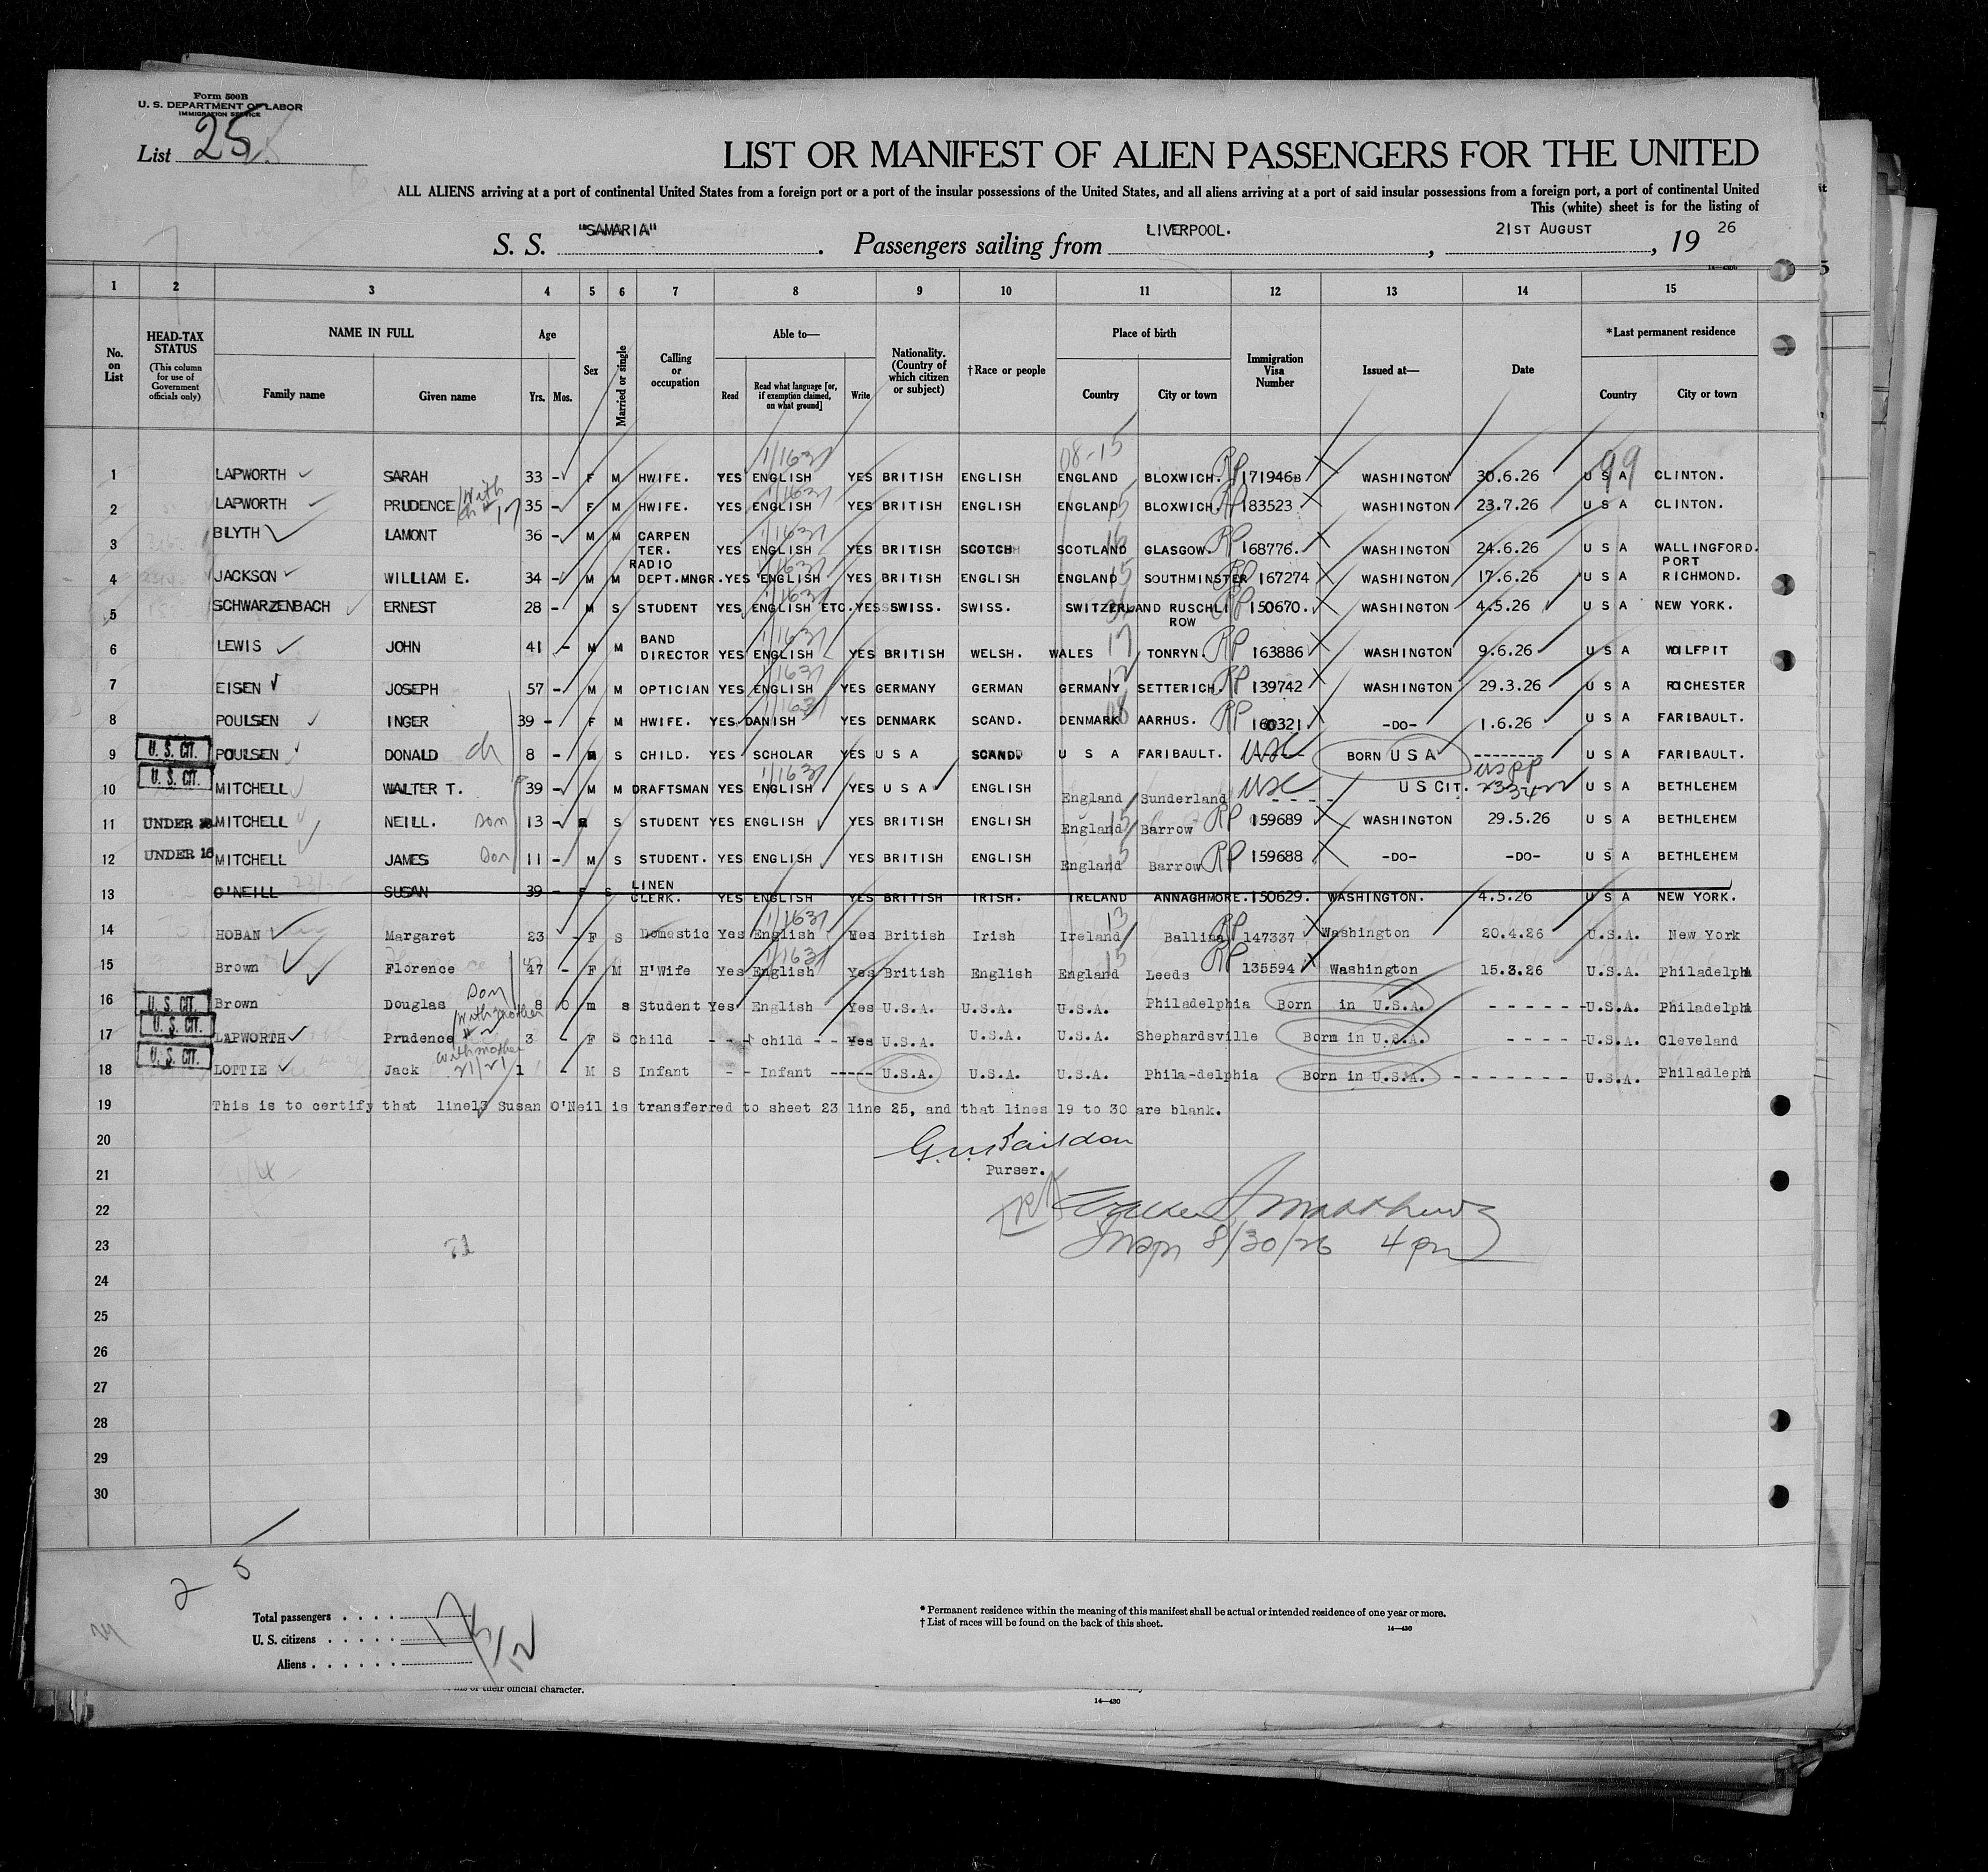 Form 500B
U. S. DEPARTMENT OF LABOR
IMMIGRATION SERVICE
List 25
LIST OR MANIFEST OF ALIEN PASSENGERS FOR THE UNITED
ALL ALIENS arriving at a port of continental United States from a foreign port or a port of the insular possessions of the United States, and all aliens arriving at a port of said insular possessions from a foreign port, a port of continental United
This (white) sheet is for the listing of
S. S. "SAMARIA" . Passengers sailing from LIVERPOOL. , 21ST AUGUST , 19 26
1 2 3 4 5 6 7 8 9 10 11 12 13 14 15
No. on List
HEAD-TAX STATUS (This column for use of Government officials only)
NAME IN FULL
Family name Given name
Age
Yrs. Mos.
Sex
Married or single
Calling or occupation
Able to—
Read Read what language [or, if exemption claimed, on what ground] Write
Nationality. (Country of which citizen or subject)
†Race or people
Place of birth
Country City or town
Immigration Visa Number
Issued at—
Date
*Last permanent residence
Country City or town
1 LAPWORTH SARAH 33 - F M HWIFE. YES ENGLISH 1/1631 YES BRITISH ENGLISH 08-15 ENGLAND BLOXWICH. RP 171946B WASHINGTON 30.6.26 U S A 99 CLINTON.
2 LAPWORTH PRUDENCE With ch # 17 35 - F M HWIFE. YES ENGLISH 1/1631 YES BRITISH ENGLISH ENGLAND 15 BLOXWICH. RP 183523 WASHINGTON 23.7.26 U S A CLINTON.
3 BLYTH LAMONT 36 - M M CARPEN TER. YES ENGLISH 1/1631 YES BRITISH SCOTCH SCOTLAND 16 GLASGOW. RP 168776. WASHINGTON 24.6.26 U S A WALLINGFORD.
4 JACKSON WILLIAM E. 34 - M M RADIO DEPT.MNGR. YES ENGLISH 1/1631 YES BRITISH ENGLISH ENGLAND 15 SOUTHMINSTER RP 167274 WASHINGTON 17.6.26 U S A PORT RICHMOND.
5 SCHWARZENBACH ERNEST 28 - M S STUDENT YES ENGLISH ETC. 1/1631 YES SWISS. SWISS. SWITZERLAND RUSCHLI ROW RP 150670. WASHINGTON 4.5.26 U S A NEW YORK.
6 LEWIS JOHN 41 - M M BAND DIRECTOR YES ENGLISH 1/1631 YES BRITISH WELSH. WALES 17 TONRYN. RP 163886 WASHINGTON 9.6.26 U S A WOILFPIT
7 EISEN JOSEPH 57 - M M OPTICIAN YES ENGLISH 1631 YES GERMANY GERMAN GERMANY 12 SETTERICH. RP 139742 WASHINGTON 29.3.26 U S A ROCHESTER
8 POULSEN INGER 39 - F M HWIFE. YES DANISH 1/1631 YES DENMARK SCAND. DENMARK 48 AARHUS. RP 160321 -DO- 1.6.26 U S A FARIBAULT.
9 U. S. CIT. POULSEN DONALD ch 8 - M S CHILD. YES SCHOLAR YES U S A SCAND. U S A FARIBAULT. USC BORN U S A -------- U S A FARIBAULT.
10 U. S. CIT. MITCHELL WALTER T. 39 - M M DRAFTSMAN YES ENGLISH 1/1631 YES U S A ENGLISH England Sunderland USC - - - - U S CIT. uspp U S A BETHLEHEM
11 UNDER 16 MITCHELL NEILL. son 13 - S STUDENT YES ENGLISH YES BRITISH ENGLISH England 15 Barrow RP 159689 WASHINGTON 29.5.26 U S A BETHLEHEM
12 UNDER 16 MITCHELL JAMES son 11 - M S STUDENT. YES ENGLISH YES BRITISH ENGLISH England 15 Barrow RP 159688 -DO- -DO- U S A BETHLEHEM
13 O'NEILL SUSAN 39 - F S LINEN CLERK. YES ENGLISH YES BRITISH IRISH. IRELAND ANNAGHMORE. 150629. WASHINGTON. 4.5.26 U S A NEW YORK.
14 HOBAN Margaret 23 - F S Domestic Yes English 1/1631 Yes British Irish Ireland 13 Ballina RP 147337 Washington 20.4.26 U.S.A. New York
15 Brown Florence 47 - F M H'Wife Yes English 1/1631 Yes British English England 15 Leeds RP 135594 Washington 15.3.26 U.S.A. Philadelpha
16 U. S. CIT. Brown Douglas Son 8 0 m s Student Yes English Yes U.S.A. U.S.A. U.S.A. Philadelphia Born in U.S.A. - - - - - -U.S.A. Philadelpha
17 U. S. CIT. LAPWORTH Prudence with mother # 2 3 - F S Child - - - child - - Yes U.S.A. U.S.A. U.S.A. Shephardsville Born in U.S.A. - - - - -U.S.A. Cleveland
18 U. S. CIT. LOTTIE Jack with mother 21/21 1 - M S Infant - - Infant ----- U.S.A. U.S.A. U.S.A. Phila-delphia Born in U.S.A. - - - - - - - U.S.A. Philadlepha
19 This is to certify that line13 Susan O'Neil is transferred to sheet 23 line 25, and that lines 19 to 30 are blank.
20
21 Purser.
22
23 Insp 8/30/26 4 pm
24
25
26
27
28
29
30
2 5
Total passengers . . . . . 17
U. S. citizens . . . . . 5
Aliens . . . . . . 12
* Permanent residence within the meaning of this manifest shall be actual or intended residence of one year or more.
† List of races will be found on the back of this sheet.
14—430
of their official character.
14—430